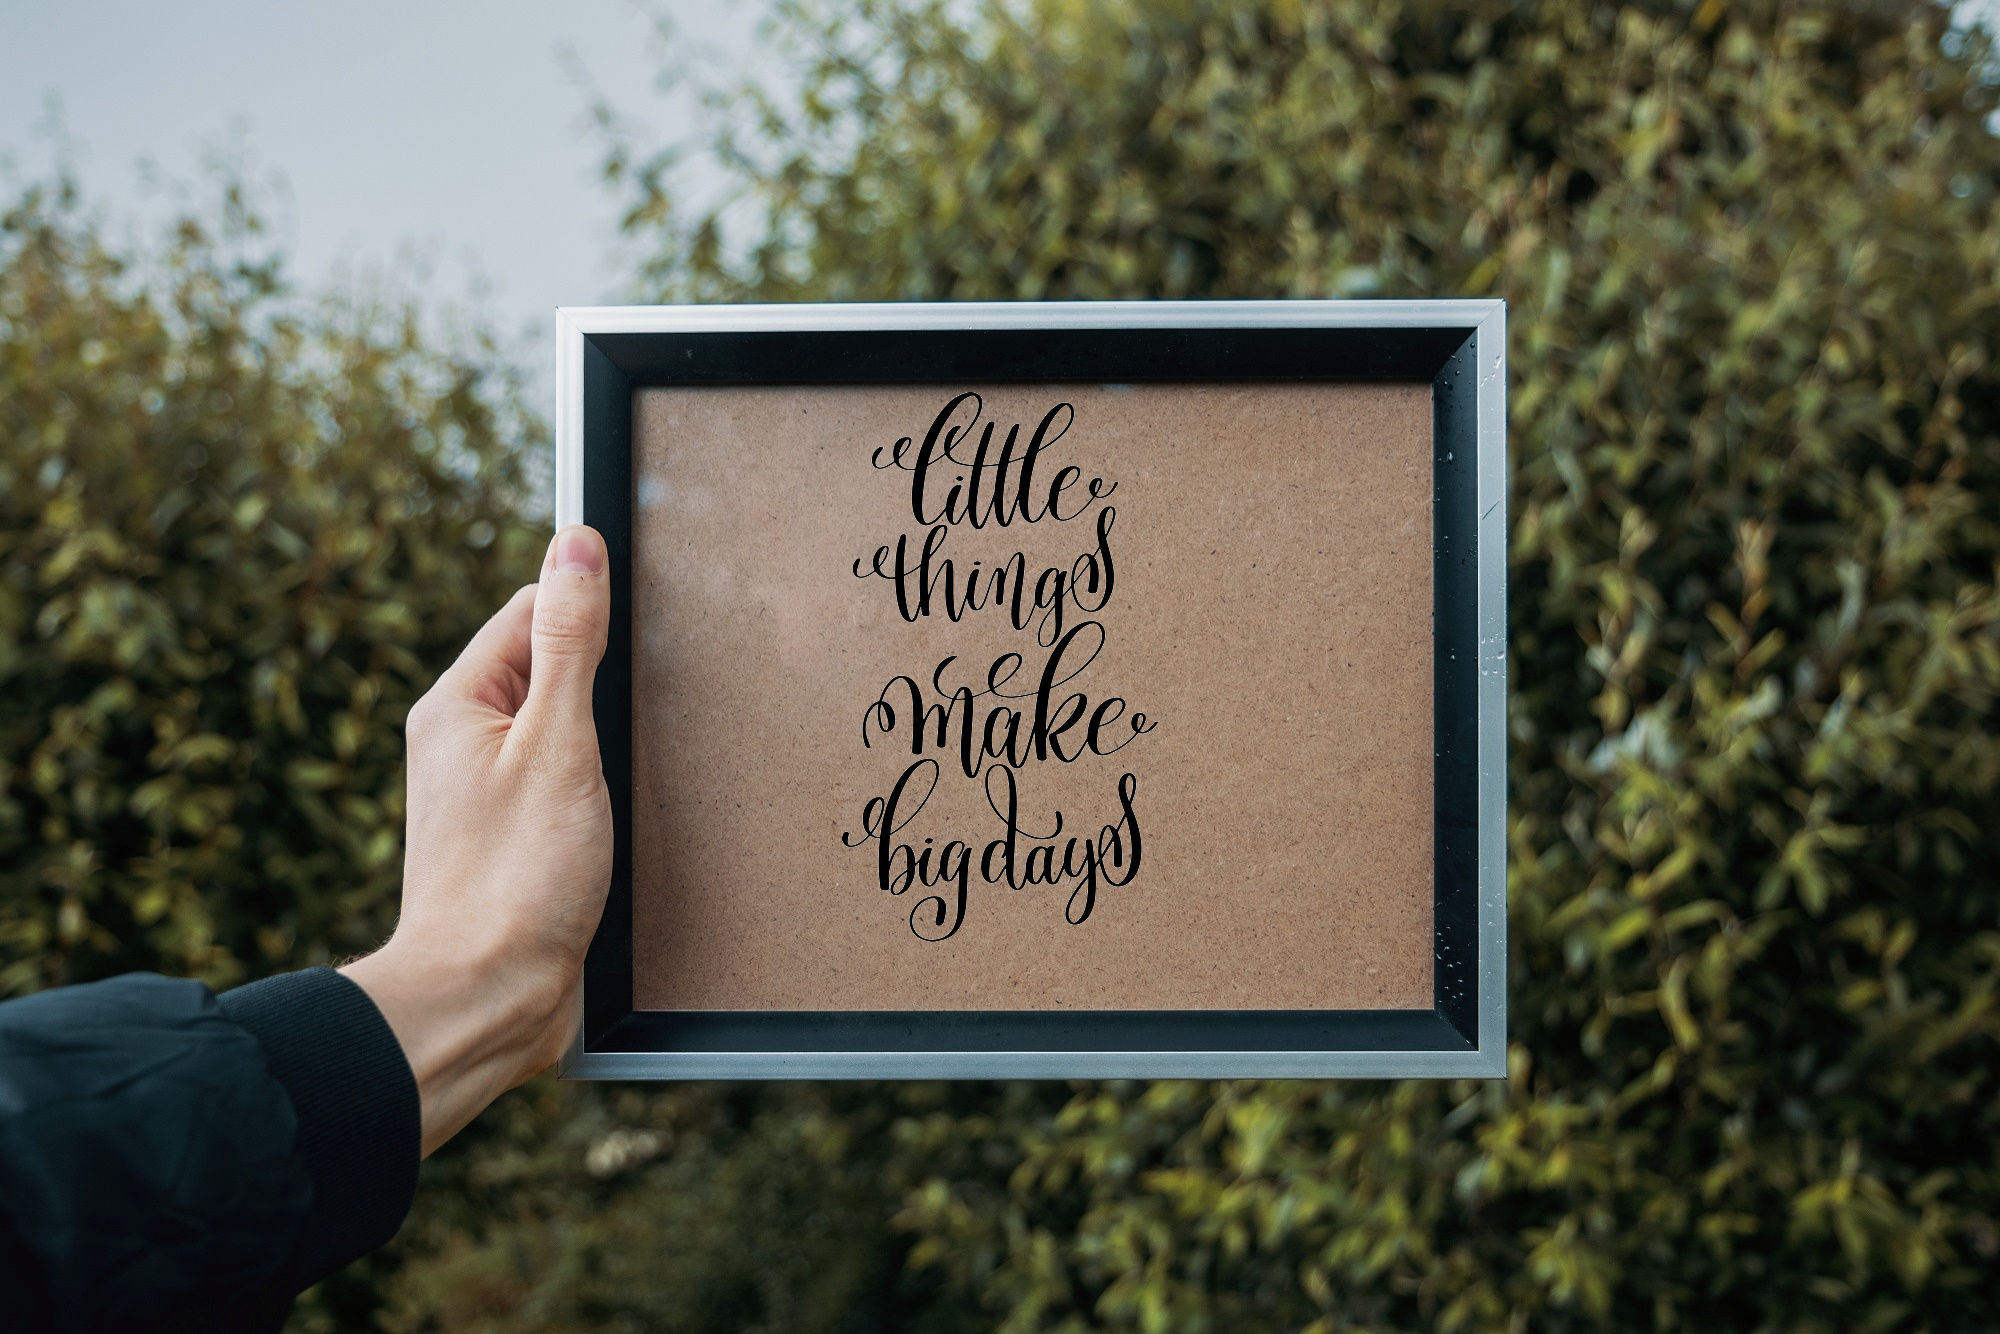 little
things
make
big days